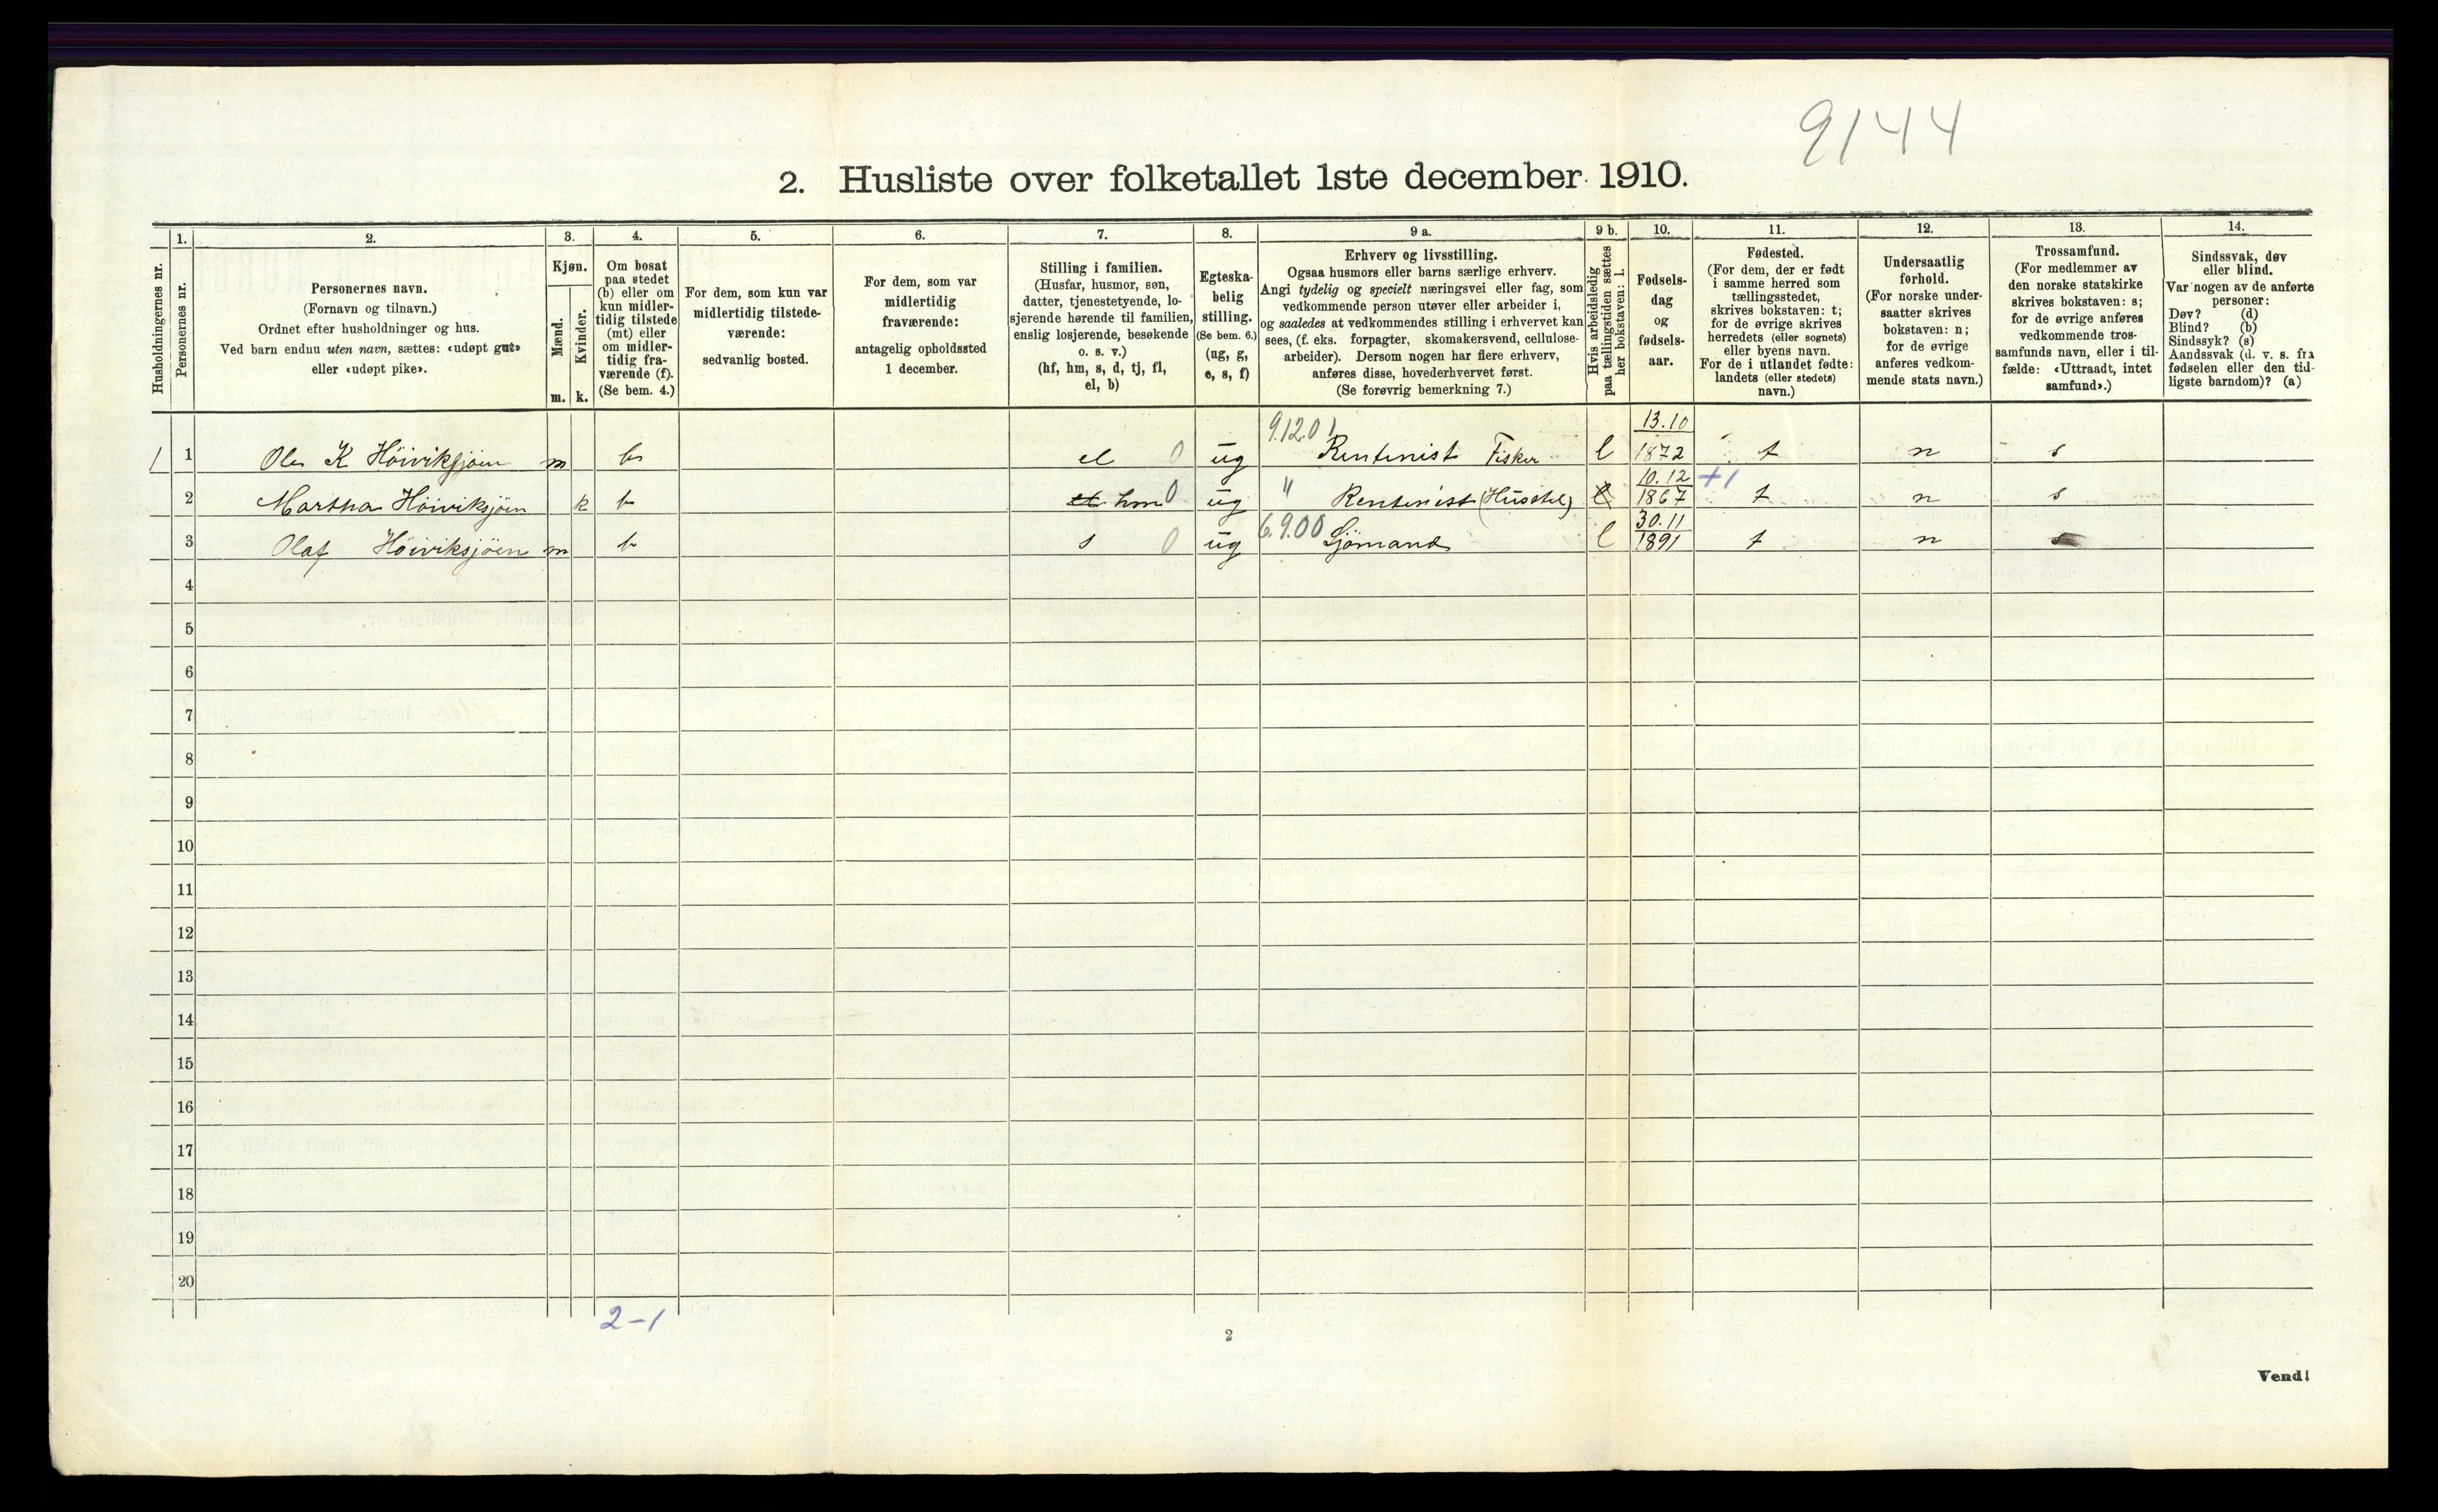 9144
2. Husliste over folketallet 1ste december 1910.
Husholdningernes nr.
1.
Personernes nr.
2.
Personernes navn.
(Fornavn og tilnavn.)
Ordnet efter husholdninger og hus.
Ved barn endnu uten navn, sættes: «udøpt gut»
eller «udøpt pike».
3.
Kjøn.
Mænd.
Kvinder.
m. k.
4.
Om bosat
paa stedet
(b) eller om
kun midler-
tidig tilstede
(mt) eller
om midler-
tidig fra-
værende (f).
(Se bem. 4.)
5.
For dem, som kun var
midlertidig tilstede-
værende:
sedvanlig bosted.
6.
For dem, som var
midlertidig
fraværende:
antagelig opholdssted
1 december.
7.
Stilling i familien.
(Husfar, husmor, søn,
datter, tjenestetyende, lo-
sjerende hørende til familien,
enslig losjerende, besøkende
o. s. v.)
(hf, hm, s, d, tj, fl,
el, b)
8.
Egteska-
belig
stilling.
(Se bem. 6.)
(ug, g,
e, s, f)
9 a.
Erhverv og livsstilling.
Ogsaa husmors eller barns særlige erhverv.
Angi tydelig og specielt næringsvei eller fag, som
vedkommende person utøver eller arbeider i,
og saaledes at vedkommendes stilling i erhvervet kan
sees, (f. eks. forpagter, skomakersvend, cellulose-
arbeider). Dersom nogen har flere erhverv,
anføres disse, hovederhvervet først.
(Se forøvrig bemerkning 7.)
9 b.
Hvis arbeidsledig
paa tællingstiden sættes
her bokstaven: l.
10.
Fødsels-
dag
og
fødsels-
aar.
11.
Fødested.
(For dem, der er født
i samme herred som
tællingsstedet,
skrives bokstaven: t;
for de øvrige skrives
herredets (eller sognets)
eller byens navn.
For de i utlandet fødte:
landets (eller stedets)
navn.)
12.
Undersaatlig
forhold.
(For norske under-
saatter skrives
bokstaven: n;
for de øvrige
anføres vedkom-
mende stats navn.)
13.
Trossamfund.
(For medlemmer av
den norske statskirke
skrives bokstaven: s;
for de øvrige anføres
vedkommende tros-
samfunds navn, eller i til-
fælde: «Uttraadt, intet
samfund».)
14.
Sindssvak, døv
eller blind.
Var nogen av de anførte
personer:
Døv? (d)
Blind? (b)
Sindssyk? (s)
Aandssvak (d. v. s. fra
fødselen eller den tid-
ligste barndom)? (a)
9.12.0 1 13.10
1 1 Ole K Höiviksjöen m b el 0 ug Rentenist Fisker l 1872 t n s
10.12 +1
2 Martha Höiviksjöen k b el hm 0 ug " Rentenist (Husstel) l 1867 t n s
6.9.00 30.11
3 Olaf Höiviksjöen m b s 0 ug Sjömand l 1891 t n s
4
5
6
7
8
9
10
11
12
13
14
15
16
17
18
19
20
2-1
2
Vend!